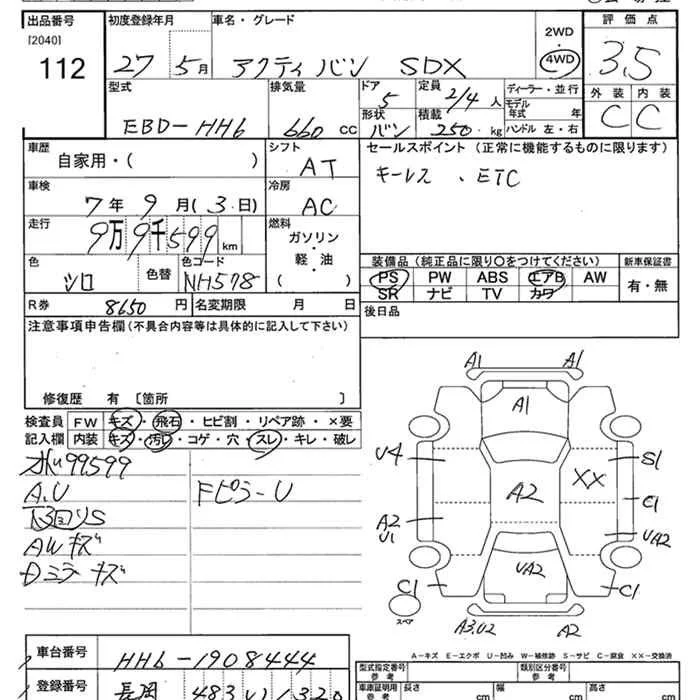 出品番号 初度登録年月 車名・グレード 評価点
[2040] 2WD
112 27 5月 アクティバン SDX 4WD 3.5
型式 排気量 ドア 定員 ディーラー・並行 外装 内装
5 2/4人 モデル年式 年 C C
EBD-HH6 660 CC 形状 積載 ハンドル 左・右
バン 250kg
車歴 シフト セールスポイント(正常に機能するものに限ります)
自家用・( ) AT キーレス 、ETC
車検 冷房
7年 9月(3日) AC
走行 燃料
9万9千599km ガソリン・軽・油
色 色替 色コード ( )
シロ NH578
装備品(純正品に限り○をつけてください) 新車保証書
PS PW ABS エアB AW 有・無
SR ナビ TV カワ
R券 8650円 名変期限 月 日 後日品
注意事項申告欄(不具合内容等は具体的に記入して下さい)
修復歴 有 [箇所 ]
検査員 FW キズ・飛石・ヒビ割・リペア跡・×要
記入欄 内装 キズ・汚レ・コゲ・穴・スレ・キレ・破レ
99599
A.U FピラーU
AWキズ
Dミラーキズ
A1 A1
A1
U4 S1
A2 XX
C1
A2 U1 UA2
UA2
C1 C1
スペア
A3.U2 A2
A-キズ E-エクボ U-凹み W-補修跡 S-サビ C-腐食 XX-交換済
車台番号 HH6-1908444
型式指定番号 参考 類別区分番号 参考
登録番号 長岡 483 い 1320
車庫証明用 参考 長さ cm 幅 cm 高さ cm